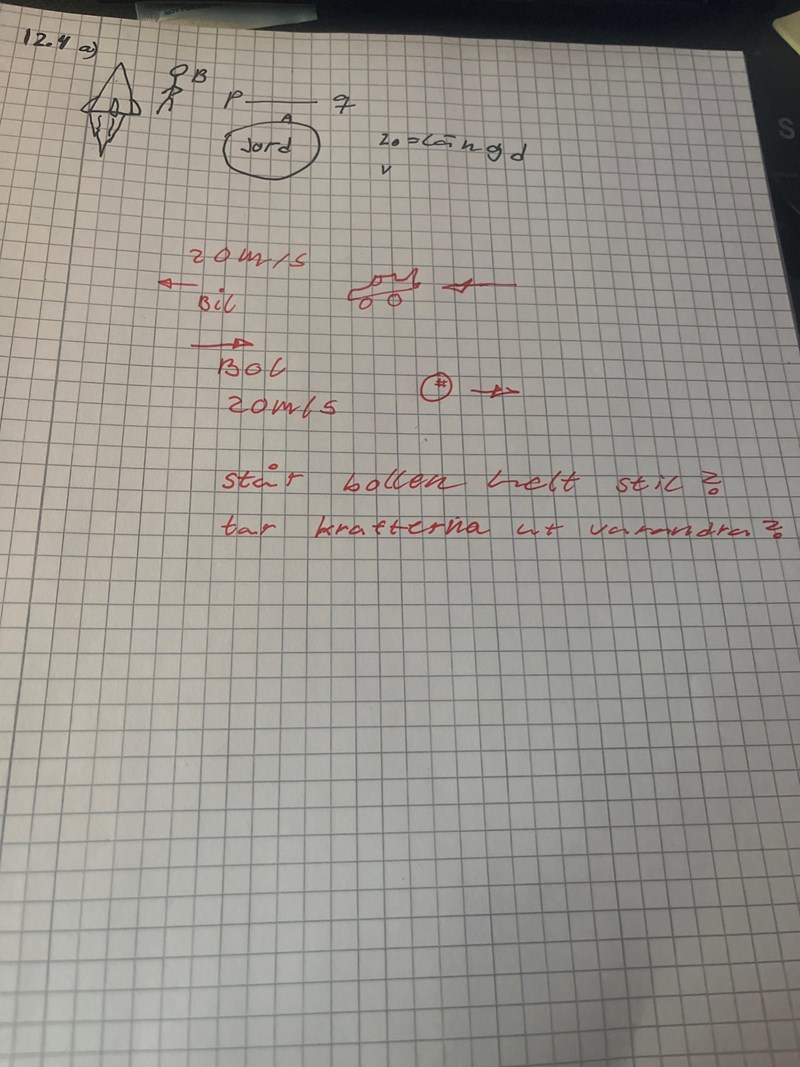 12.4 a)
B
P q
A
Jord
L₀ = Längd
v
20 m/s
Bil
Bol
20 m/s
står bollen helt stil?
tar kratterna ut varandra?